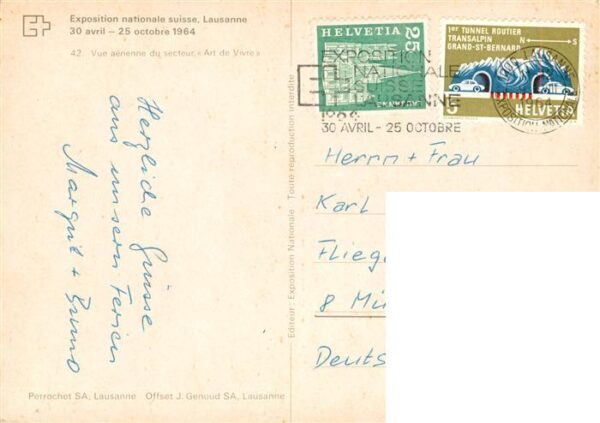 Exposition nationale suisse, Lausanne
30 avril – 25 octobre 1964
42. Vue aérienne du secteur « Art de Vivre »
Herzliche Grüsse
aus unseren Ferien
Margrit + Bruno
Perrochet SA, Lausanne Offset J. Genoud SA, Lausanne
Editeur: Exposition Nationale - Toute reproduction interdite
HELVETIA
25
1er TUNNEL ROUTIER
TRANSALPIN
GRAND-ST-BERNARD
N S
5
HELVETIA
EXPOSITION
NATIONALE
SUISSE
LAUSANNE
30 AVRIL - 25 OCTOBRE
LAUSANNE
EXPOSITION NAT
Herrn + Frau
Karl
Flieg
8 Mü
Deuts